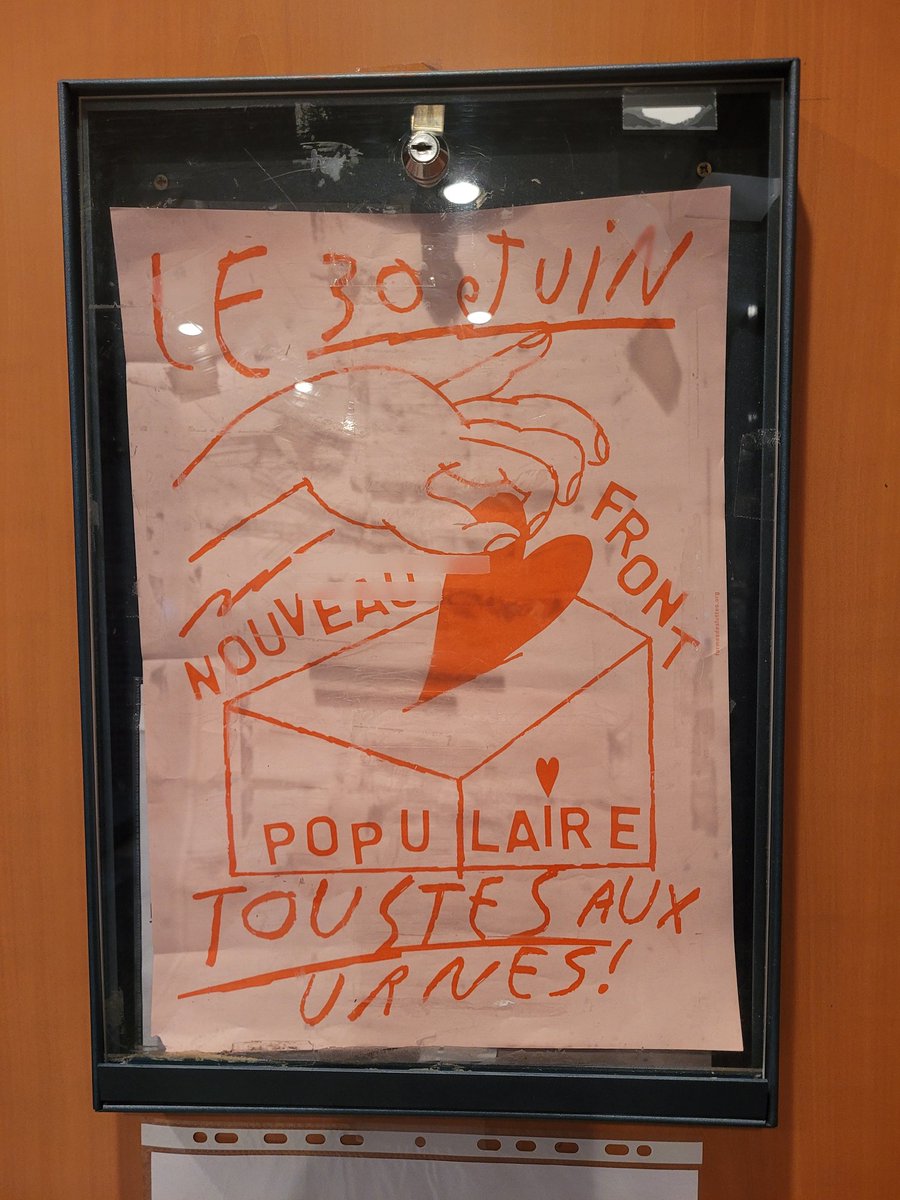 LE 30 JUIN
NOUVEAU FRONT
POPULAIRE
TOUSTES AUX
URNES!
formesdesluttes.org